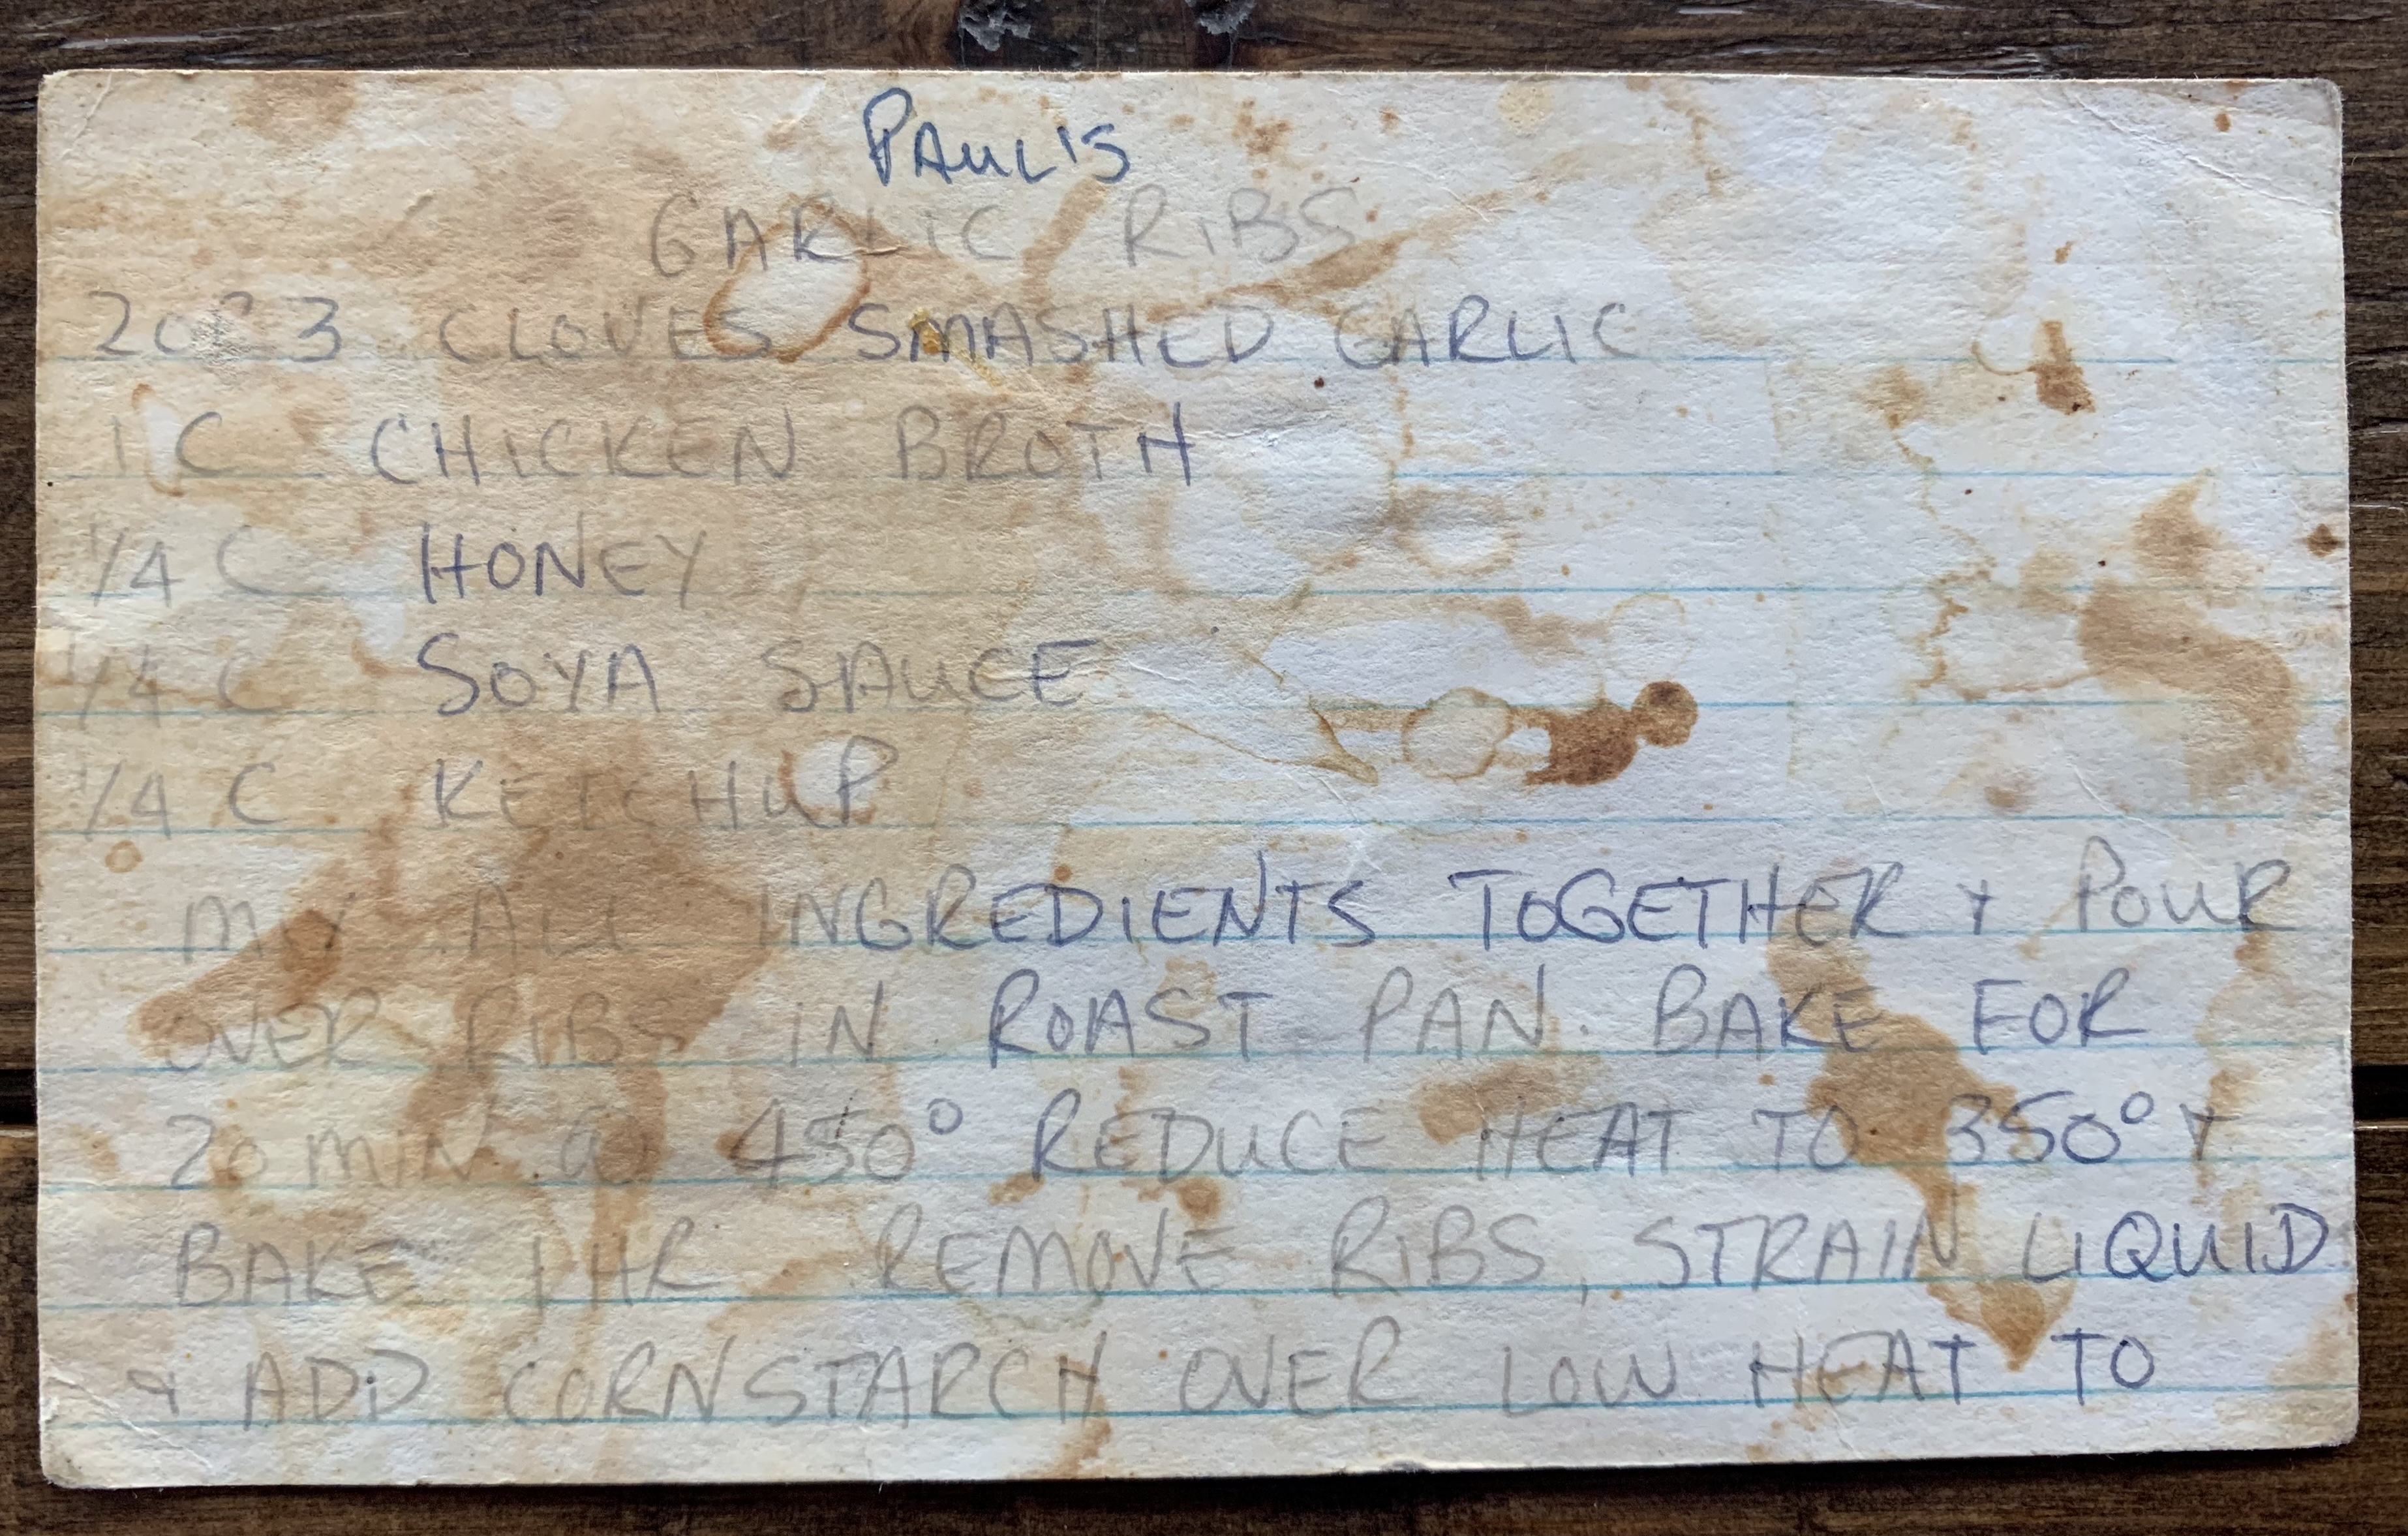 PAUL'S
GARLIC RIBS
2 OR 3 CLOVES SMASHED GARLIC
1 C CHICKEN BROTH
1/4 C HONEY
1/4 C SOYA SAUCE
1/4 C KETCHUP
MIX ALL INGREDIENTS TOGETHER + POUR
OVER RIBS IN ROAST PAN. BAKE FOR
20 MIN @ 450° REDUCE HEAT TO 350° +
BAKE 1 HR REMOVE RIBS, STRAIN LIQUID
+ ADD CORNSTARCH OVER LOW HEAT TO